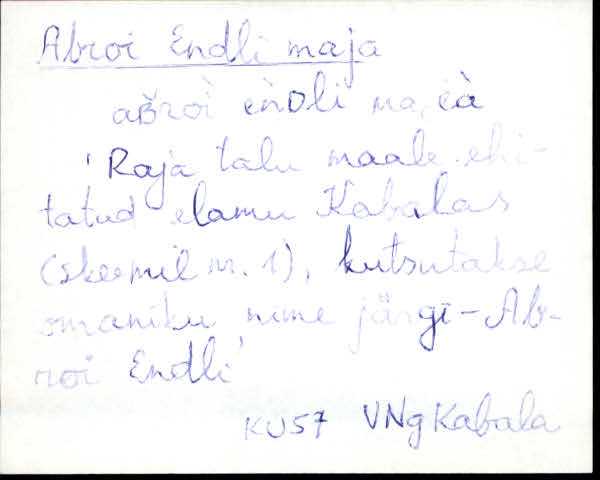 Abroi Endli maja
aʙ̆roì ènᴅli ma
'Raja talu maale ehi-
tatud elamu Kabalas
(skeemil nr. 1), kutsutakse
omaniku nime järgi - Ab-
roi Endli'
KU57 VNg Kabala